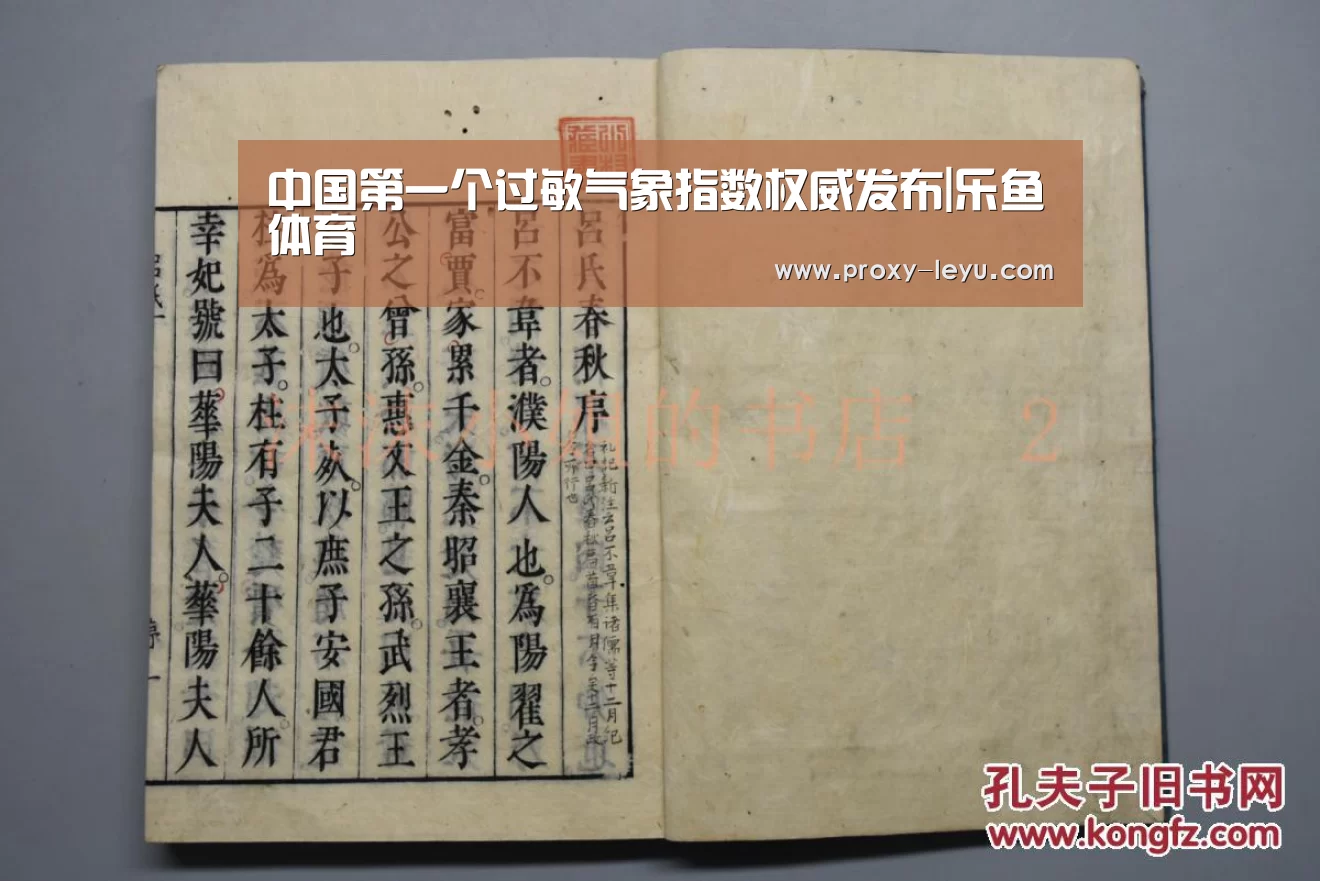 中国第一个过敏气象指数权威发布|乐鱼
体育
www.proxy-leyu.com
呂氏春秋序
呂不韋者濮陽人也為陽翟之
富賈家累千金秦昭襄王者孝
公之曾孫惠文王之孫武烈王
子也太子死以庶子安國君
柱為太子柱有子二十餘人所
幸妃號曰華陽夫人華陽夫人
的书店 2
孔夫子旧书网
www.kongfz.com